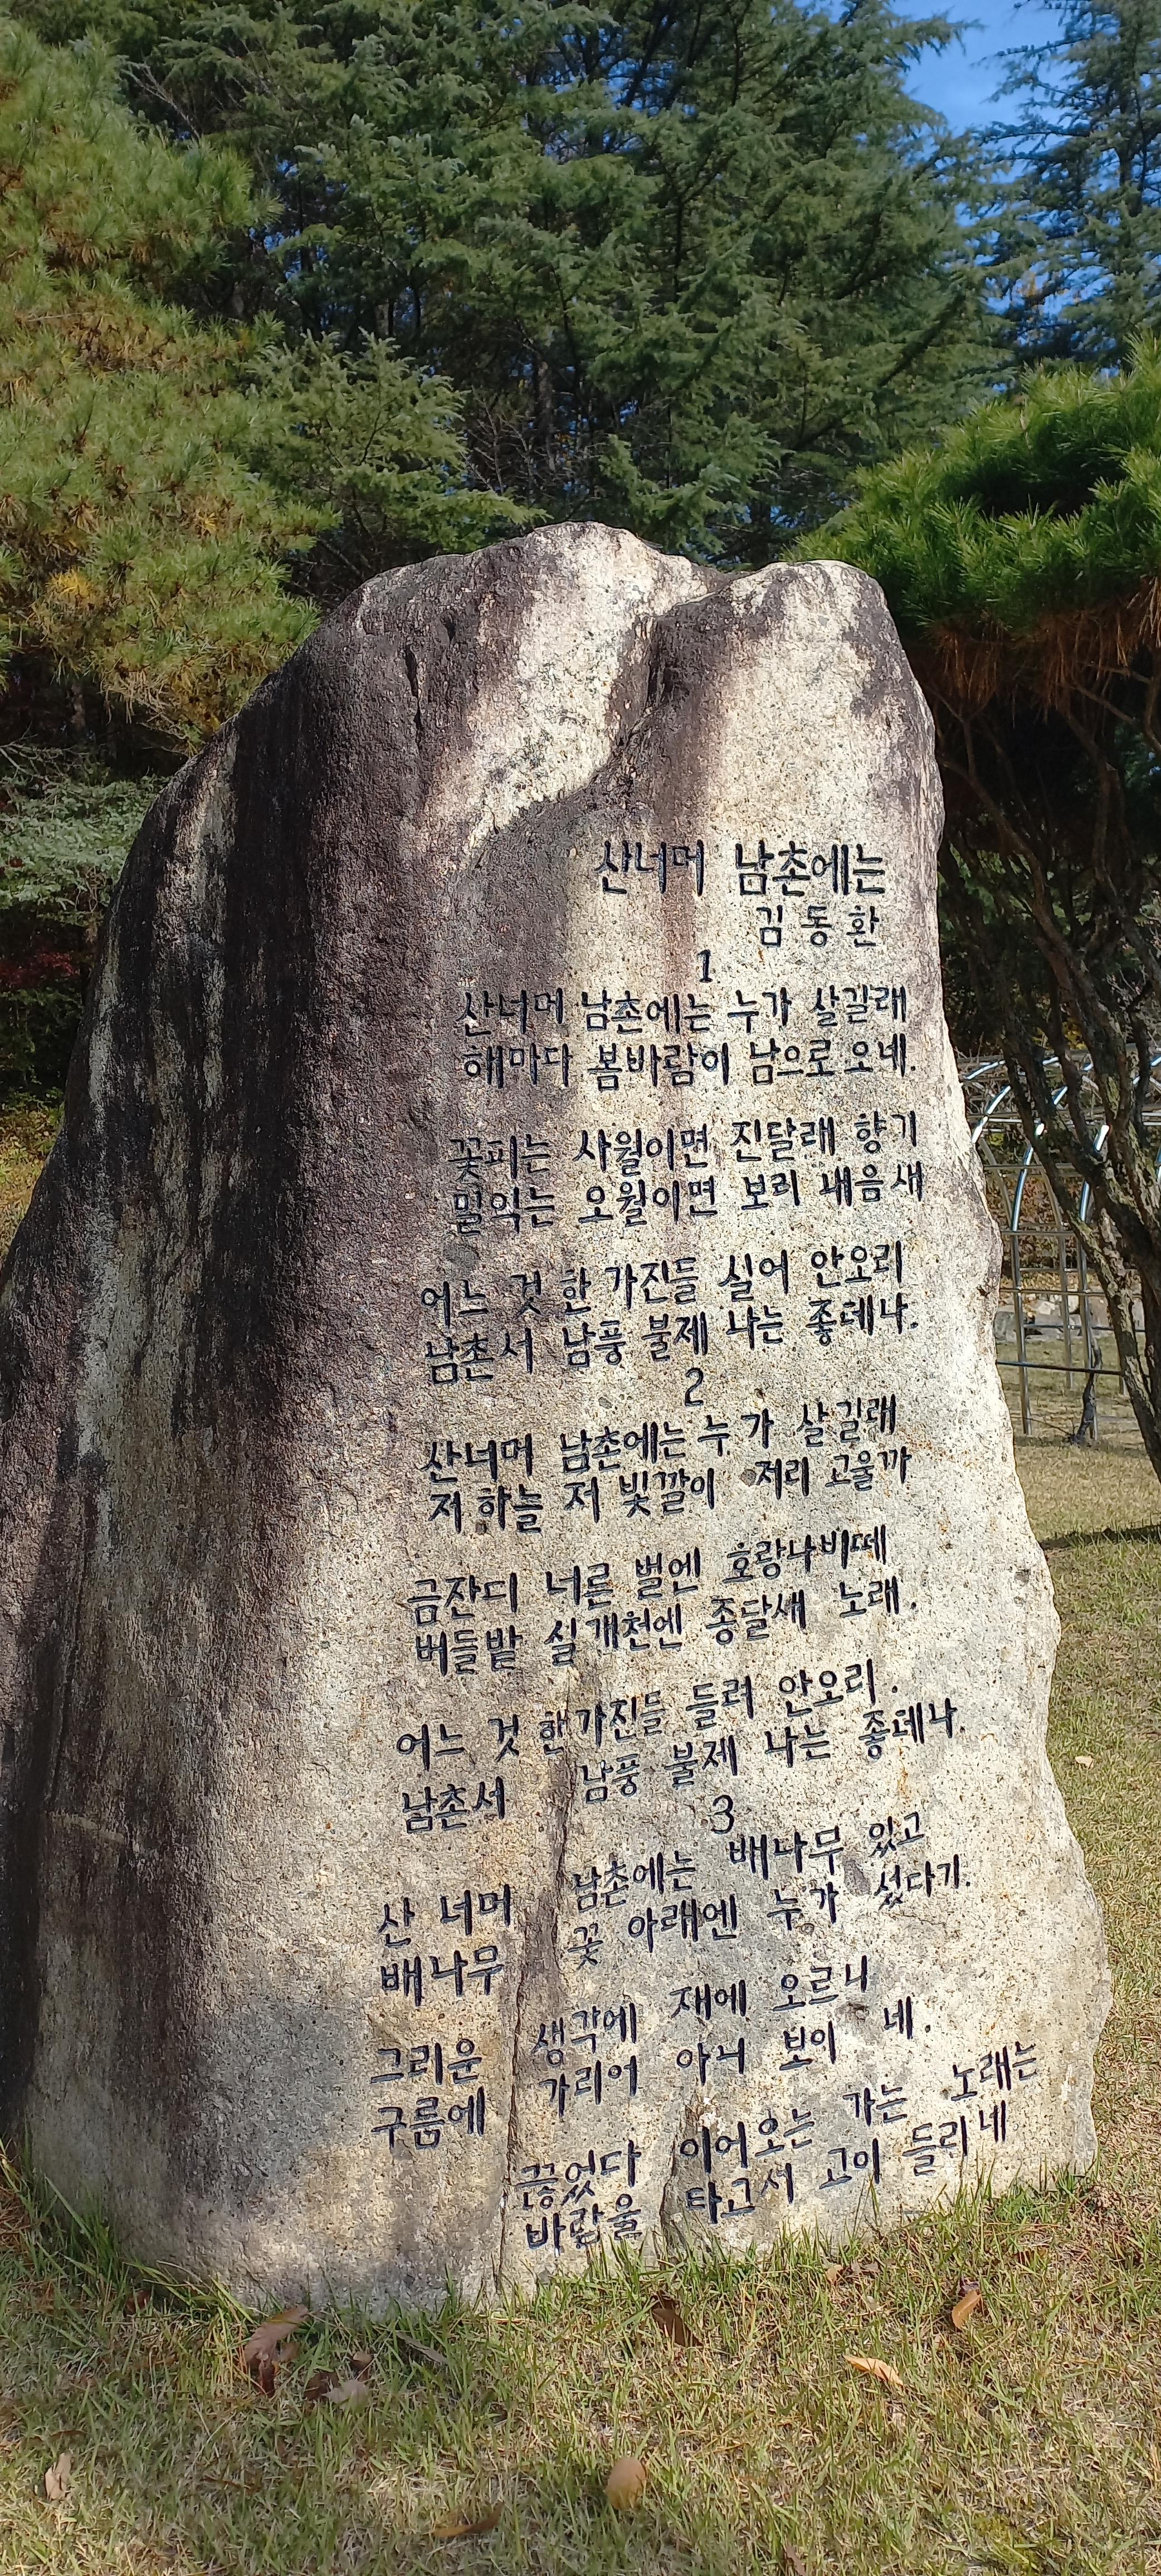 산너머 남촌에는
김동환
1
산너머 남촌에는 누가 살길래
해마다 봄바람이 남으로 오네.
꽃피는 사월이면 진달래 향기
밀익는 오월이면 보리 내음새
어느 것 한 가진들 실어 안오리
남촌서 남풍 불제 나는 좋데나.
2
산너머 남촌에는 누가 살길래
저 하늘 저 빛깔이 저리 고울까
금잔디 너른 벌엔 호랑나비떼
버들밭 실개천엔 종달새 노래.
어느 것 한가진들 들려 안오리.
남촌서 남풍 불제 나는 좋데나.
3
산 너머 남촌에는 배나무 있고
배나무 꽃 아래엔 누가 섰다기.
그리운 생각에 재에 오르니
구름에 가리어 아니 보이 네.
끊었다 이어오는 가는 노래는
바람을 타고서 고이 들리네